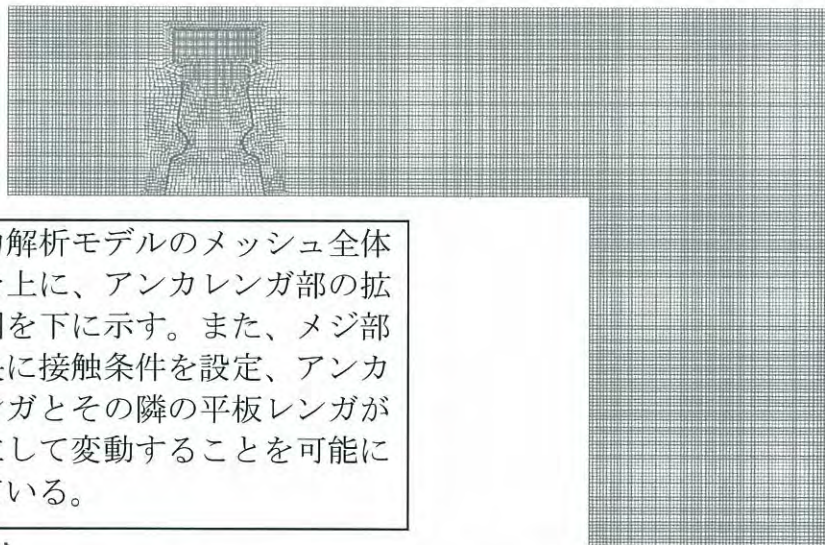 解析モデルのメッシュ全体
上に、アンカレンガ部の拡
を下に示す。また、メジ部
に接触条件を設定、アンカ
ガとその隣の平板レンガが
して変動することを可能に
いる。